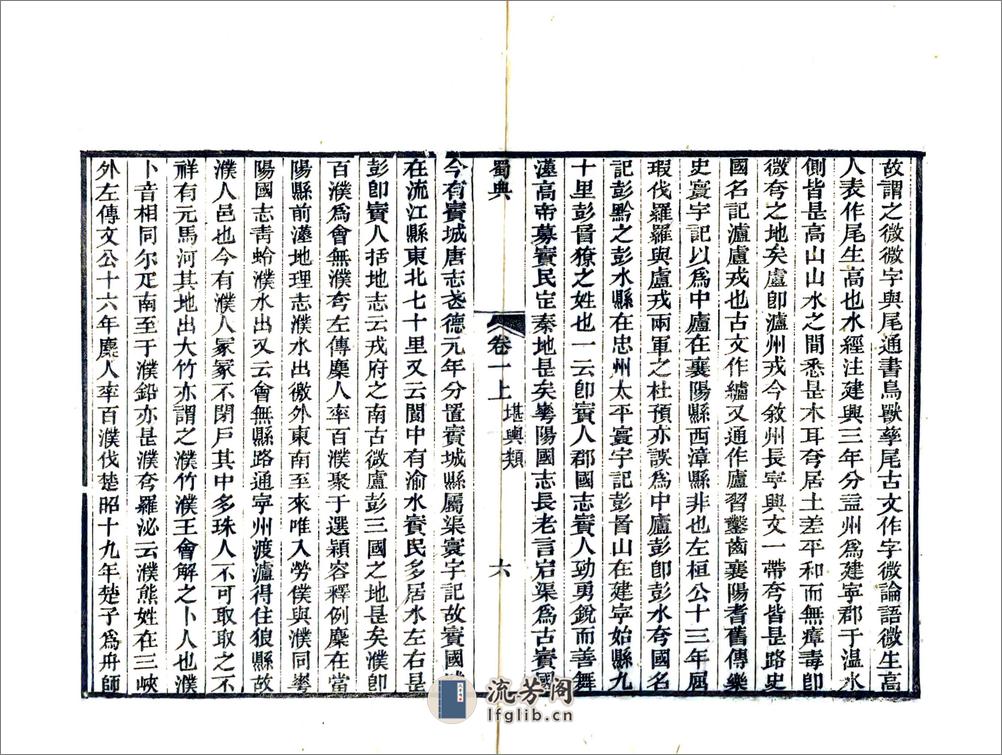 故謂之微微字與尾通書鳥獸孳尾古文作字微論語微生高
人表作尾生高也水經注建興三年分益州爲建寧郡于温水
側皆是高山山水之間悉是木耳夸居土差平和而無瘴毒卽
微夸之地矣盧卽瀘州戎今敘州長寧興文一帶夸皆是路史
國名記瀘盧戎也古文作纑又通作廬習鑿齒襄陽耆舊傳樂
史寰宇記以爲中廬在襄陽縣西漳縣非也左桓公十三年屈
瑕伐羅羅與盧戎兩軍之杜預亦誤爲中廬彭卽彭水夸國名
記彭黔之彭水縣在忠州太平寰宇記彭㫺山在建寧始縣九
十里彭㫺獠之姓也一云卽賨人郡國志賨人勁勇銳而善舞
漢高帝募賨民定秦地是矣華陽國志長老言宕渠爲古賨國
蜀典 卷一上 堪輿類 六
今有賨城唐志武德元年分置賨城縣屬渠寰宇記故賨國城
在流江縣東北七十里又云閬中有渝水賨民多居水左右是
彭卽賨人括地志云戎府之南古微盧彭三國之地是矣濮卽
百濮爲會無濮夸左傳麇人率百濮聚于選潁容釋例麇在當
陽縣前漢地理志濮水出徼外東南至來唯入勞僕與濮同華
陽國志青蛉濮水出又云會無縣路通寧州渡瀘得住狼縣故
濮人邑也今有濮人冢冢不閉戶其中多珠人不可取取之不
祥有元馬河其地出大竹亦謂之濮竹濮王會解之卜人也濮
卜音相同尔疋南至于濮鉛亦是濮夸羅泌云濮熊姓在三峽
外左傳文公十六年麇人率百濮伐楚昭十九年楚子爲舟師
流芳阁
lfglib.cn